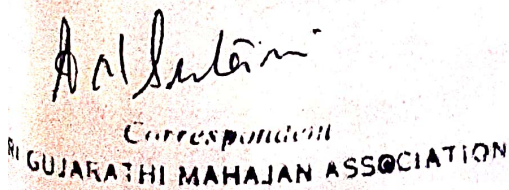 Correspondent
RI GUJARATHI MAHAJAN ASSOCIATION